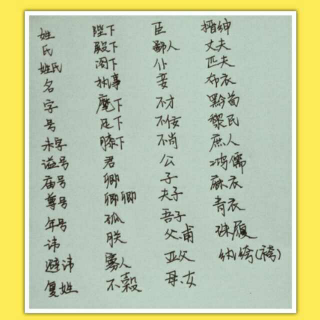 姓
氏
姓氏
名
字
号
谥号
庙号
尊号
年号
讳
避讳
复姓
陛下
殿下
阁下
执事
麾下
足下
膝下
君
卿
卿卿
孤
朕
寡人
不榖
臣
鄙人
仆
妾
不才
不佞
不肖
公
子
夫子
吾子
父、甫
亚父
母、女
搢绅
丈夫
匹夫
布衣
黔首
黎民
庶人
鸿儒
麻衣
青衣
珠履
纨绔(袴)